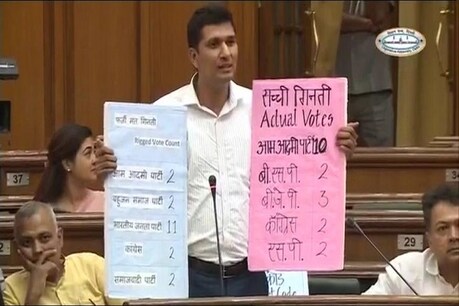 फर्जी मत गिनती
Rigged Vote Count
आम आदमी पार्टी 2
बहुजन समाज पार्टी 2
भारतीय जनता पार्टी 11
कांग्रेस 2
समाजवादी पार्टी 2
सच्ची गिनती
Adual Votes
आम आदमी पार्टी 10
बी.एस.पी. 2
बी.जे.पी. 3
काँग्रेस 2
एस.पी. 2
37
29